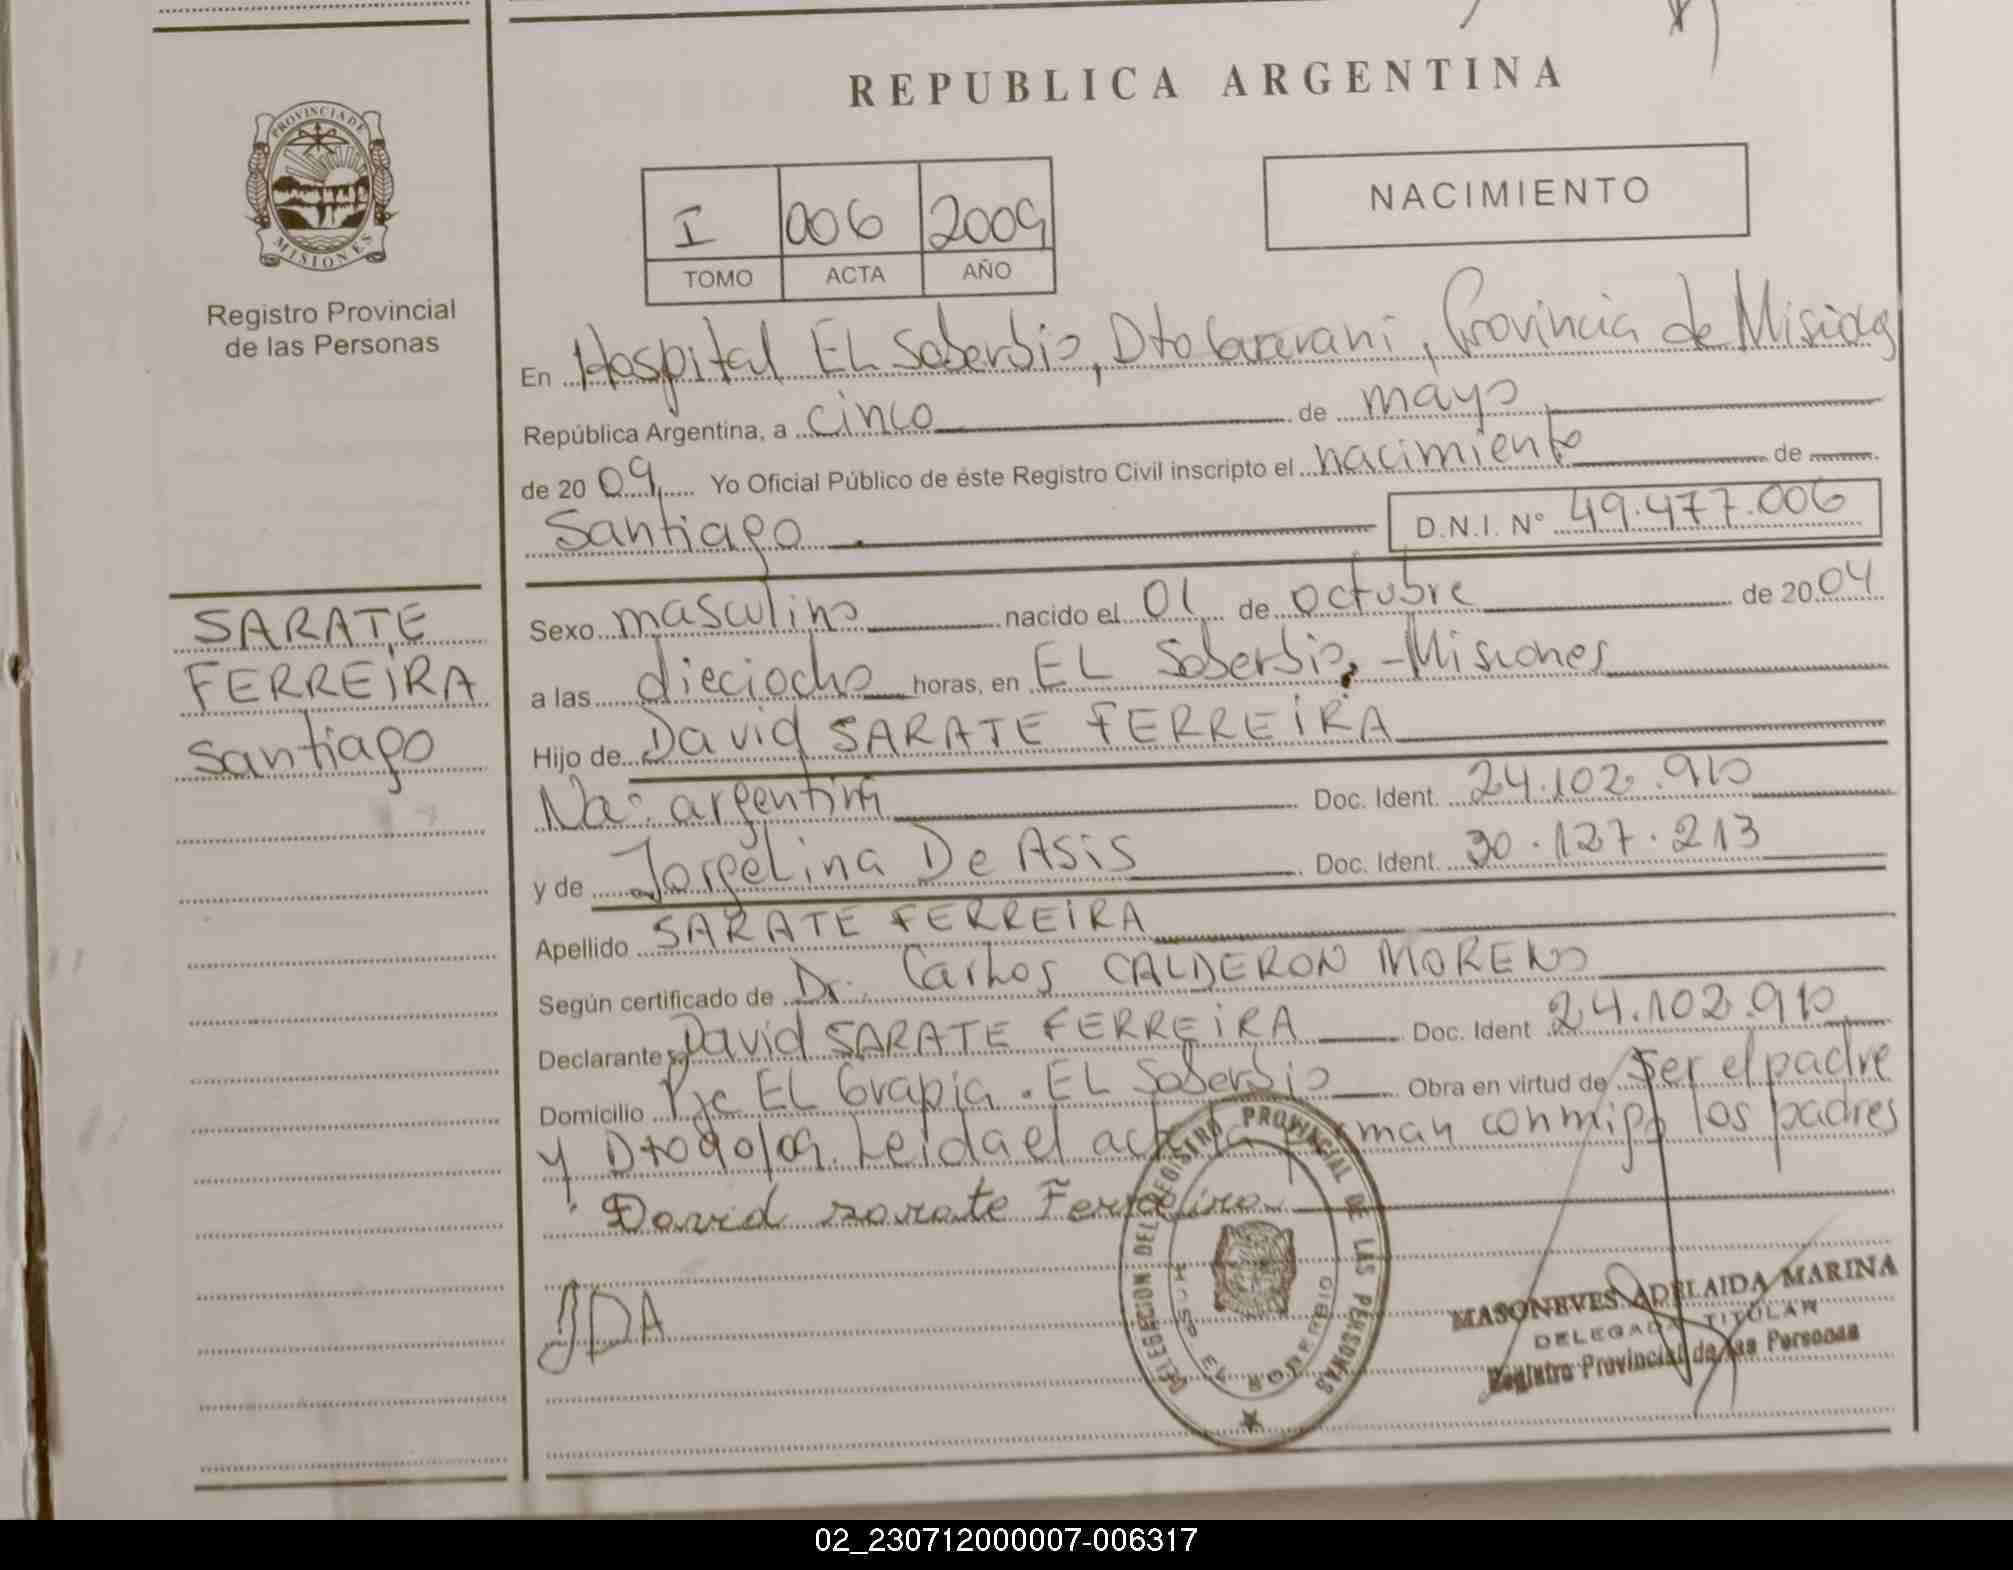 REPUBLICA ARGENTINA
PROVINCIA DE
MISIONES
Registro Provincial
de las Personas
I 006 2009
TOMO ACTA AÑO
NACIMIENTO
En Hospital EL Soberbio, Dto Guarani, Provincia de Misiones
República Argentina, a cinco de mayo
de 2009 Yo Oficial Público de éste Registro Civil inscripto el nacimiento de
Santiago D.N.I. N° 49.477.006
SARATE
FERREIRA
Santiago
Sexo masculino nacido el 01 de octubre de 2004
a las dieciocho horas, en EL Soberbio, -Misiones
Hijo de David SARATE FERREIRA
Na: argentina Doc. Ident. 24.102.910
y de Jorgelina De Asis Doc. Ident. 30.127.213
Apellido SARATE FERREIRA
Según certificado de Dr. Carlos CALDERON MORENO
Declarante David SARATE FERREIRA Doc. Ident 24.102.910
Domicilio Pje EL Grapia. EL Soberbio Obra en virtud de Ser el padre
y Dto 90/09. Leida el acta firman conmigo los padres
David sarate Ferreira
JDA
DELEGACION DEL REGISTRO PROVINCIAL DE LAS PERSONAS
EL SOBERBIO
MASONEVES ADELAIDA MARINA
DELEGADA TITULAR
Registro Provincial de las Personas
02_230712000007-006317